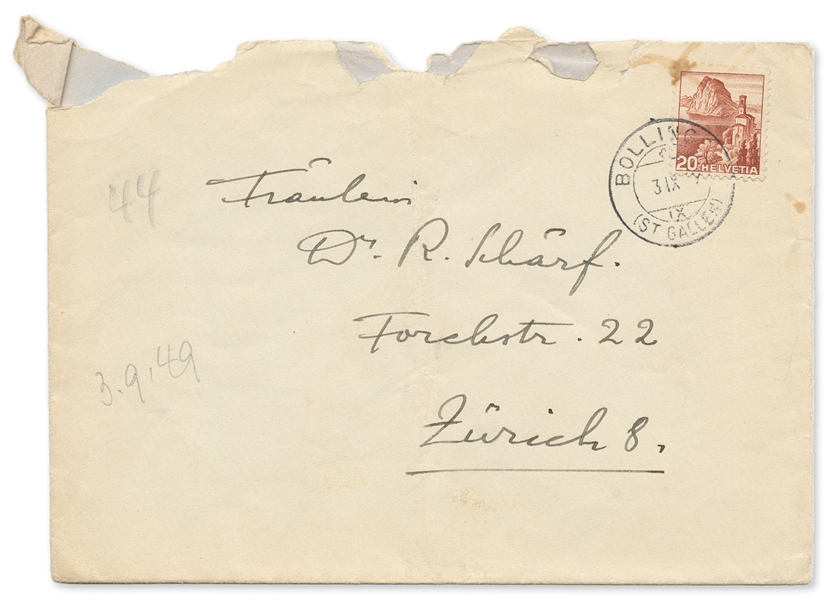 20 HELVETIA
BOLLING
3 IX
IX
(ST GALLEN)
44
Fräulein
Dr. R. Schärf.
Forchstr. 22
3.9.49
Zürich 8.